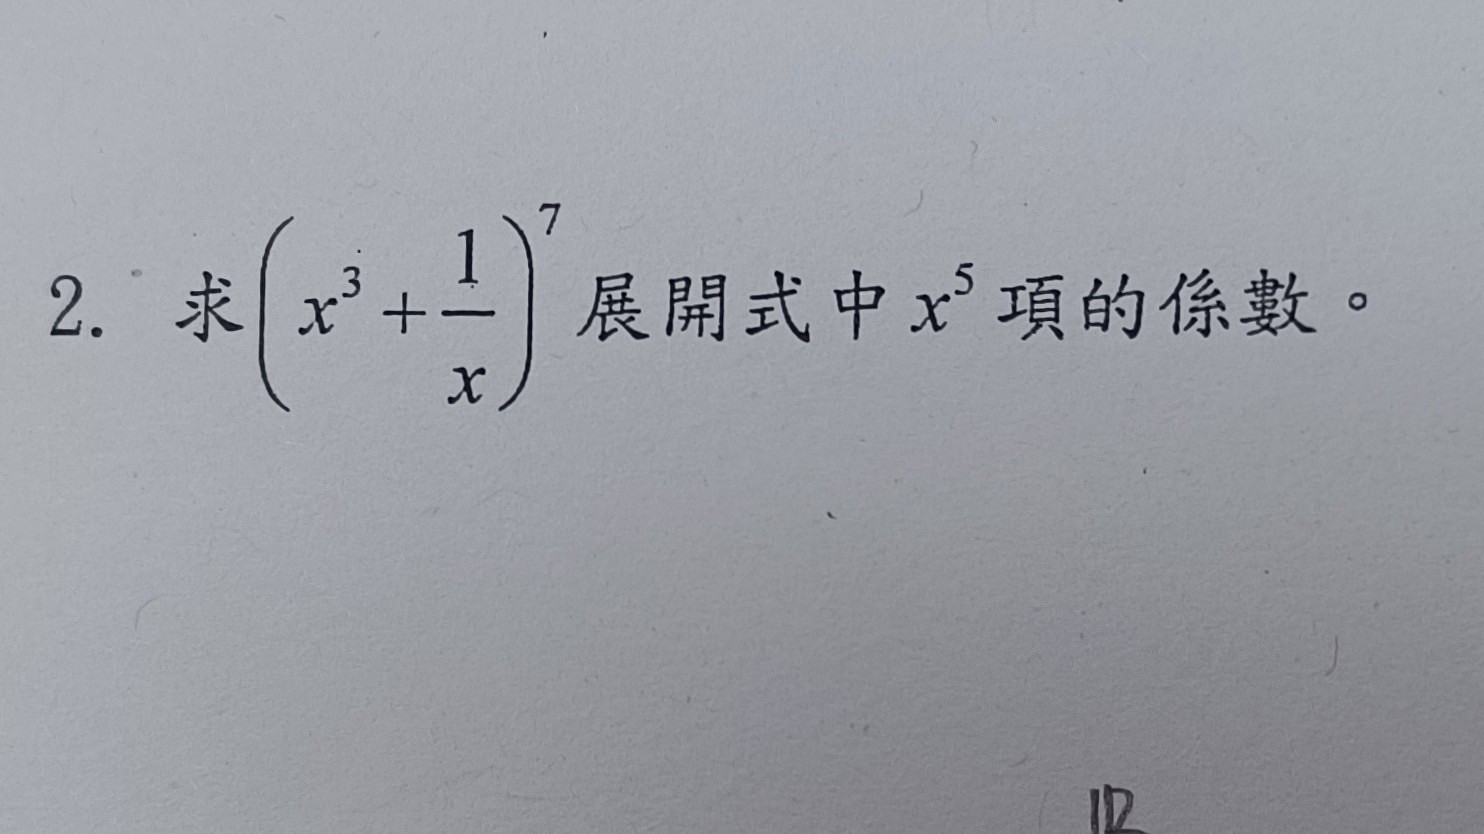 2. 求(x³ + 1/x)⁷ 展開式中 x⁵ 項的係數。